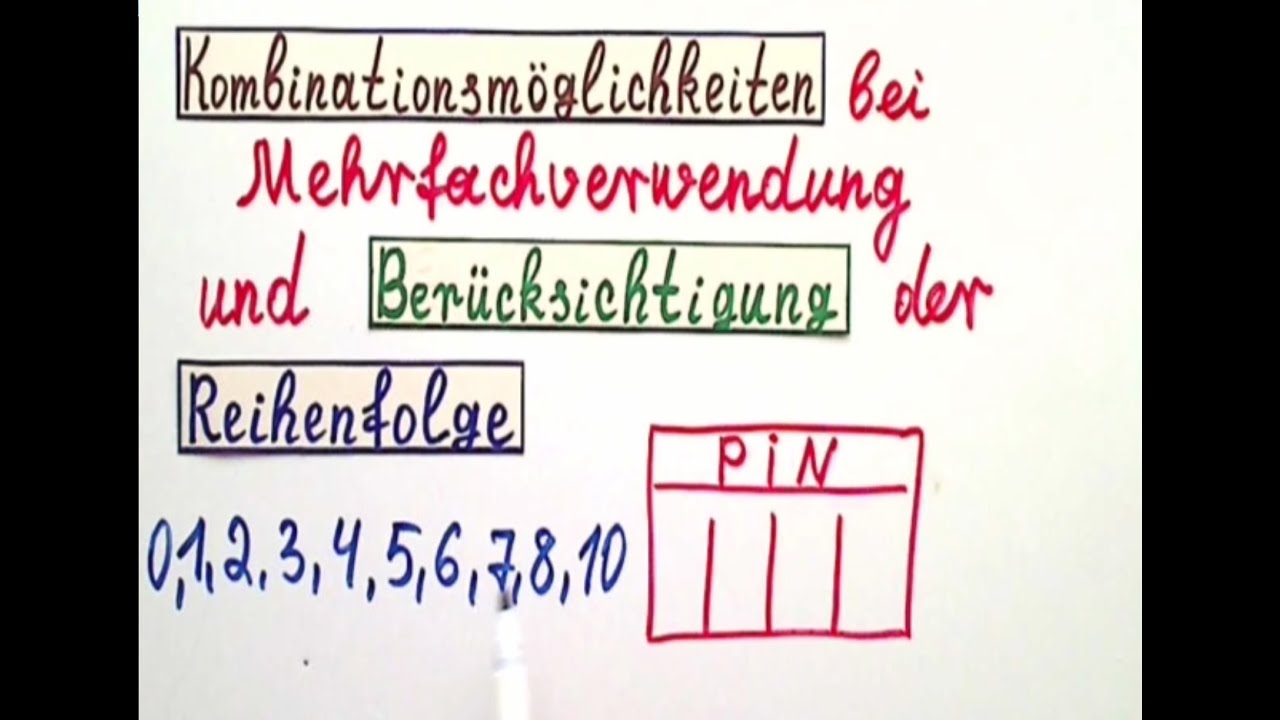 Kombinationsmöglichkeiten bei
Mehrfachverwendung
und Berücksichtigung der
Reihenfolge
PiN
0,1,2,3,4,5,6,7,8,10